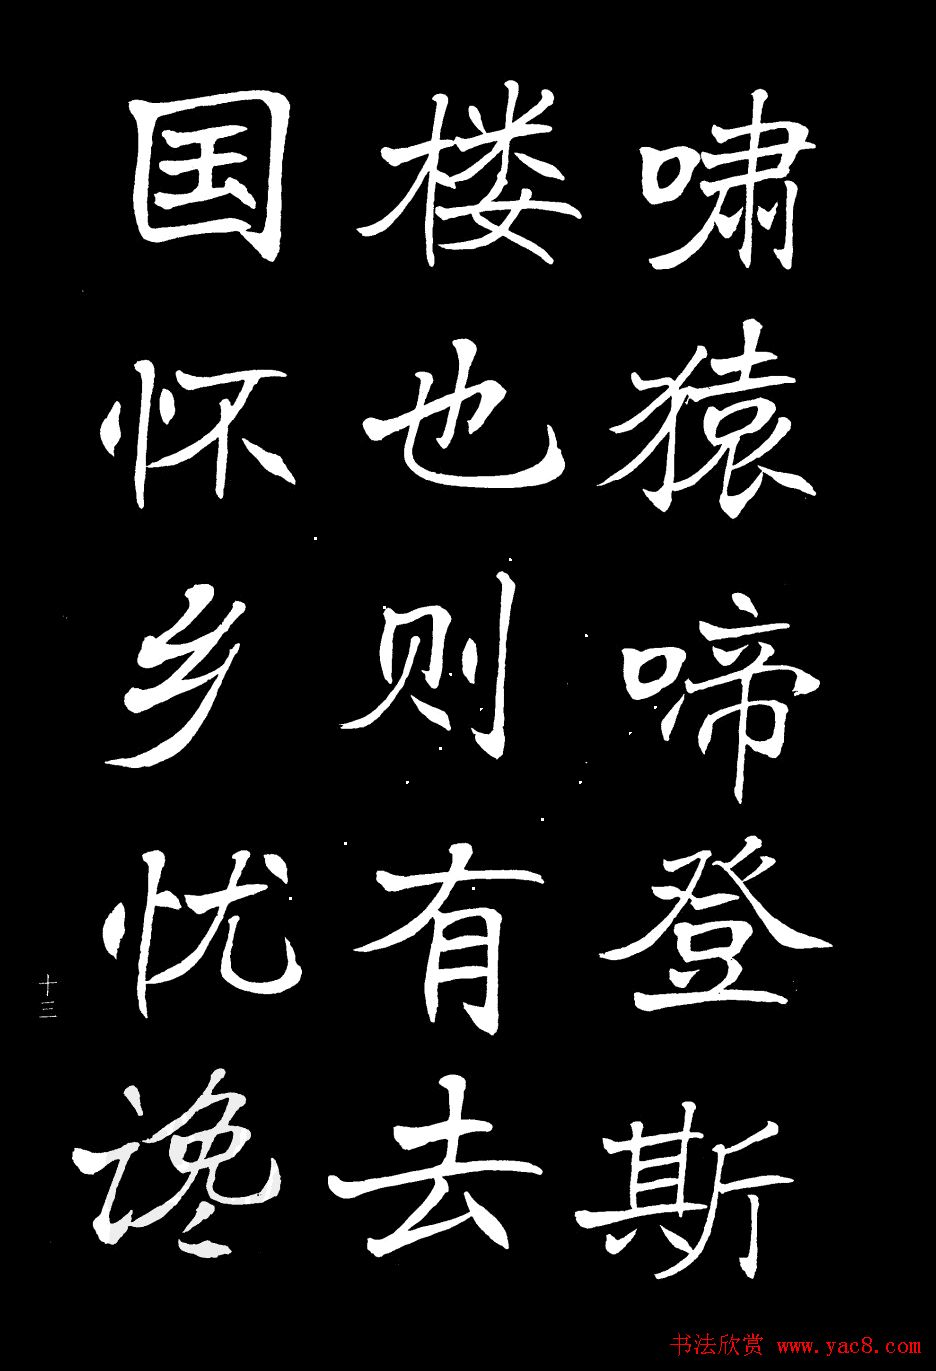 啸猿啼登斯
楼也则有去
国怀乡忧谗
十三
书法欣赏 www.yac8.com